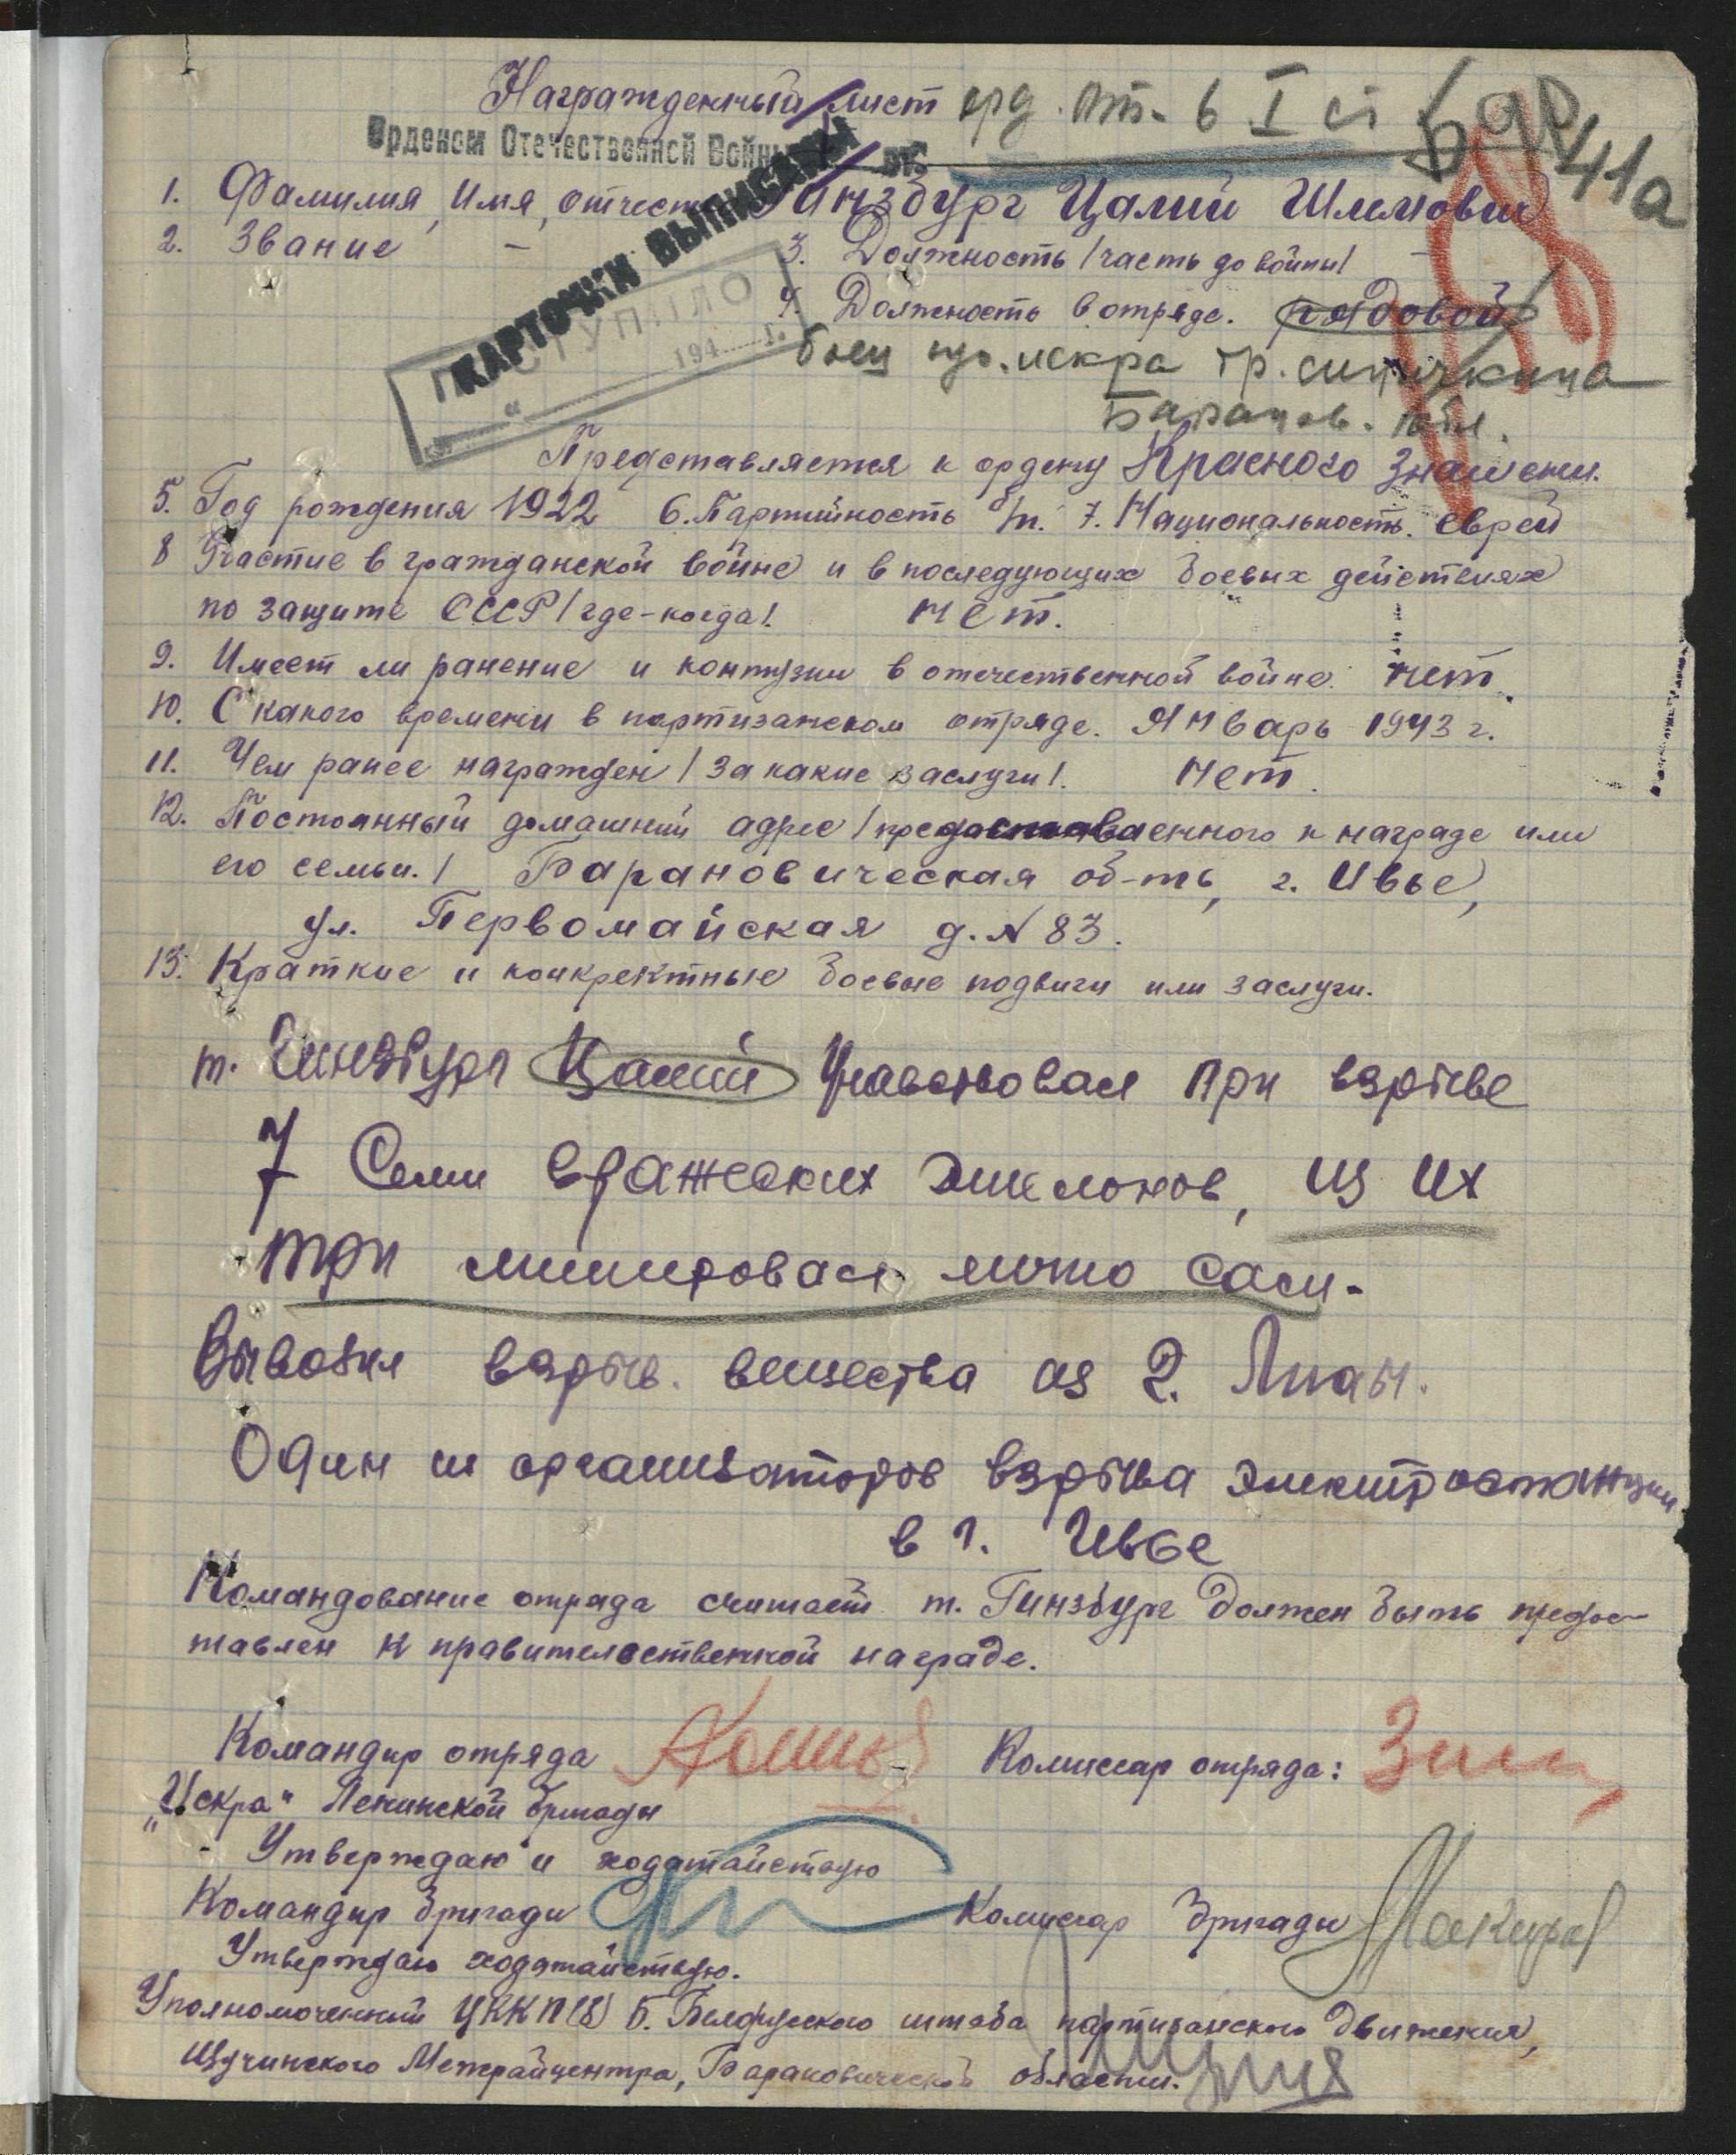 Награжденный лист орд. От. в I ст
Орденом Отечественной Войны ст.
КАРТОЧКИ ВЫПИСАНЫ
41а
1. Фамилия, Имя, отчест Гинзбург Цалий Шлемович
2. Звание –
3. Должность /часть до войны/ –
ПОСТУПИЛО
194 г.
4. Должность в отряде. рядовой
боец искра бр.
Баранов. обл.
Представляется к ордену Красного Знамени.
5. Год рождения 1922 6. Партийность б/п. 7. Национальность. еврей
8 Участие в гражданской войне и в последующих боевых действиях
по защите СССР /где-когда/. нет.
9. Имеет ли ранение и контузии в отечественной войне. нет.
10. С какого времени в партизанском отряде. Январь 1943 г.
11. Чем ранее награжден /за какие заслуги/. нет.
12. Постоянный домашний адрес / к награде или
его семьи./ Барановическая об-ть, г. Ивье,
ул. Первомайская д. N 83.
13. Краткие и конкректные боевые подвиги или заслуги.
т. Гинзбург Цалий Участвовал при взрыве
7 Семи вражеских эшелонов, из их
три минировал лично сам.
Вывозил взрыв. вещества из г. Лиды.
Один из организаторов взрыва электростанции
в г. Ивье
Командование отряда считает т. Гинзбург должен быть предос-
тавлен к правителственной награде.
Командир отряда Комиссар отряда:
„Искра" Ленинской бригады
- Утверждаю и ходатайствую
Командир бригады Комиссар бригады
Утверждаю ходатайствую.
Уполномоченный ЦККП(б) Б. Белорусского штаба партизанского движения,
Щучинского Межрайцентра, Барановической области.